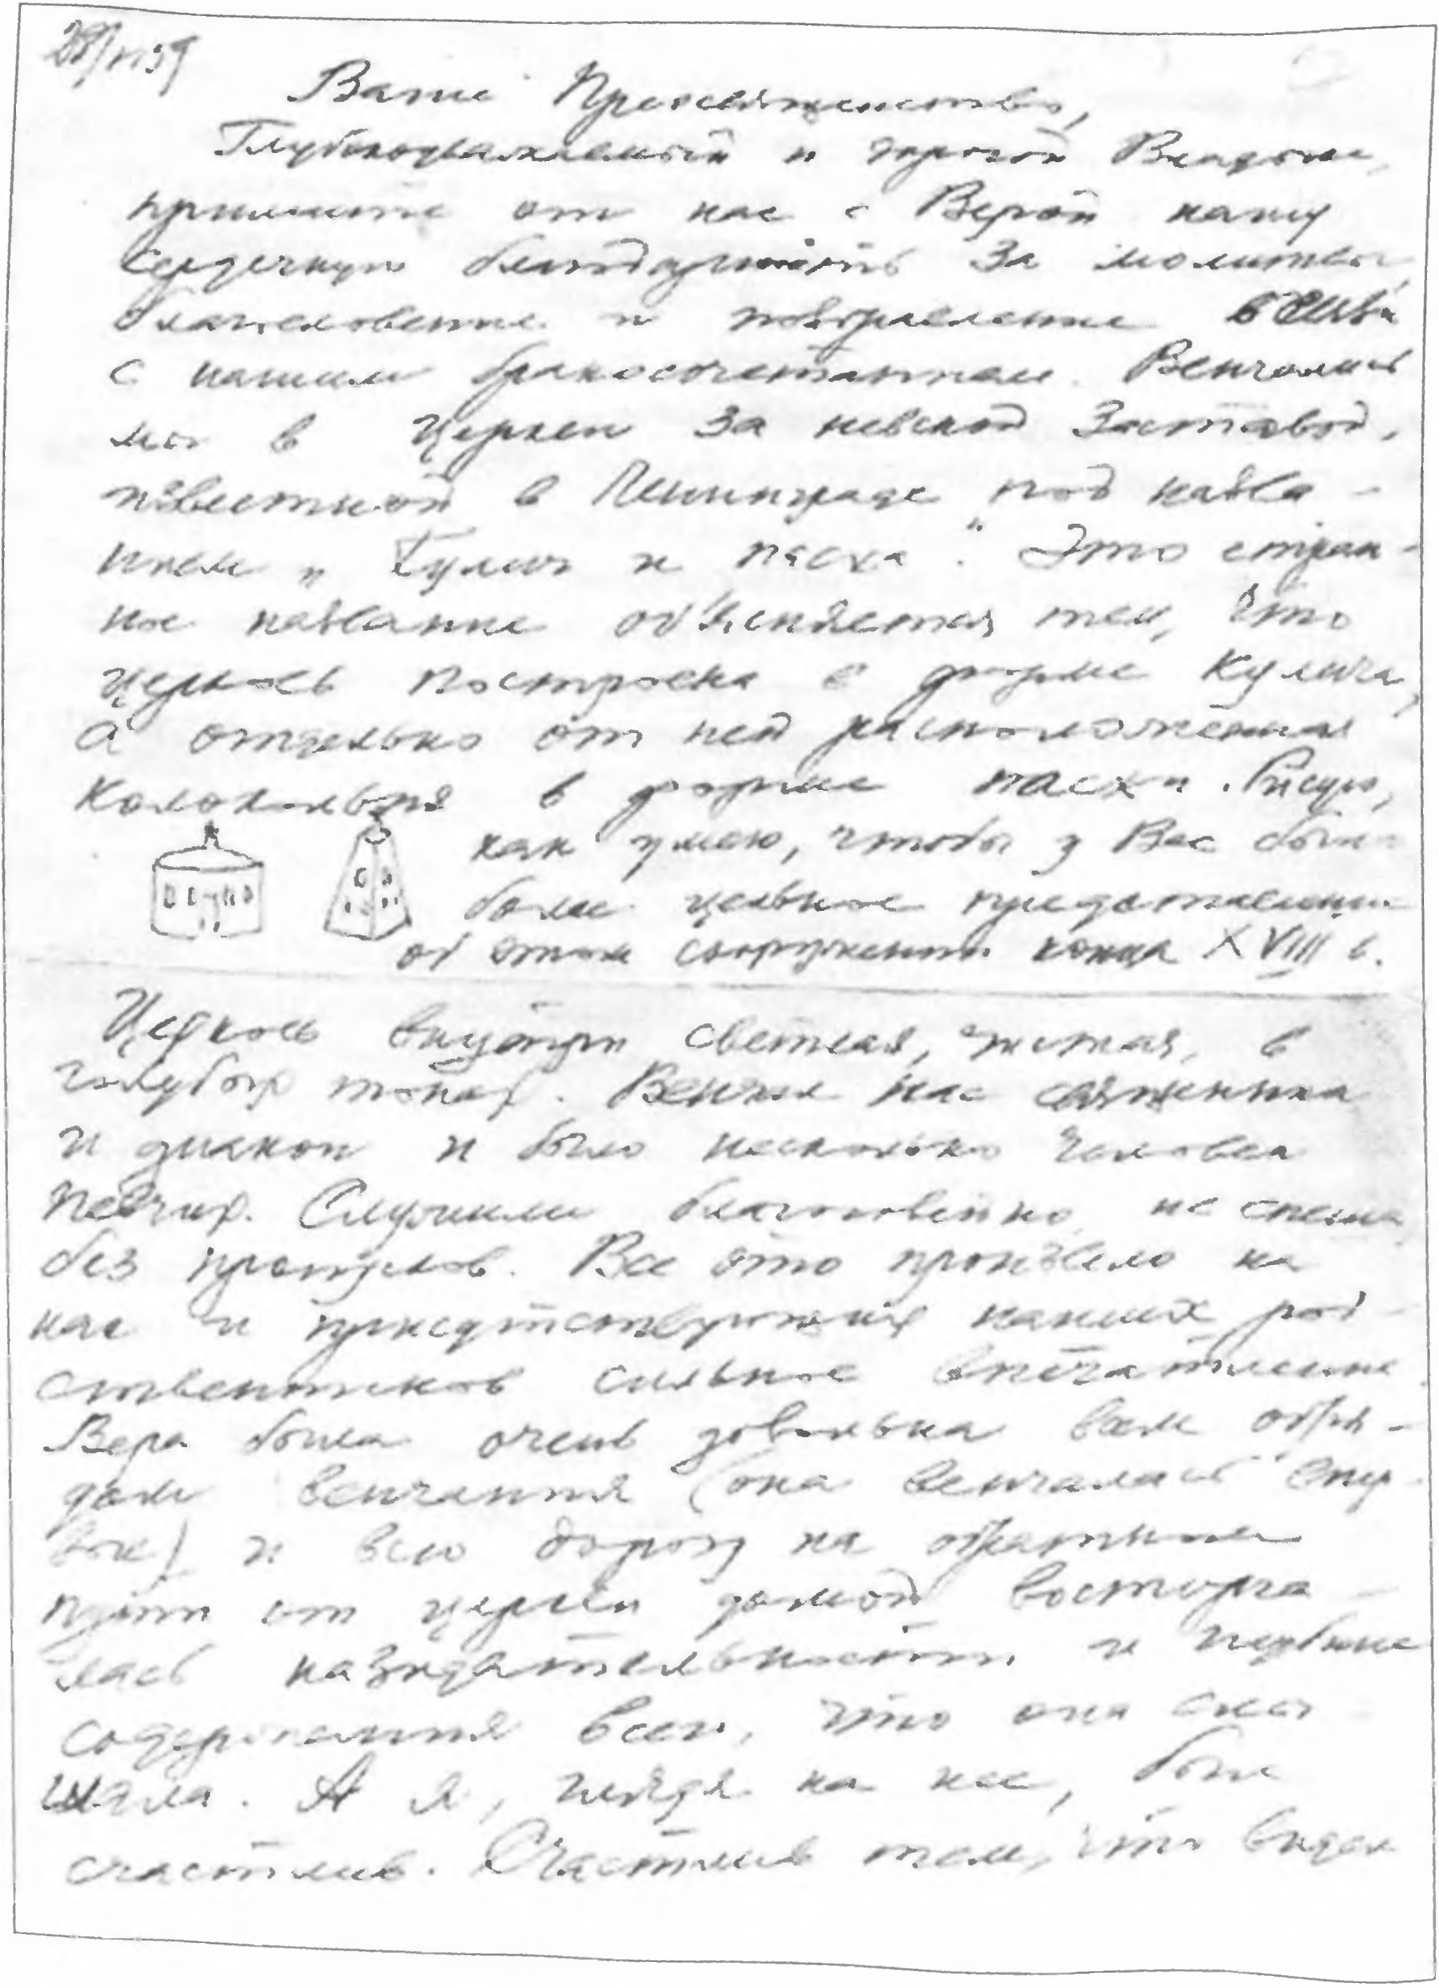 Ваше Преосвященство,
Глубокоуважаемый и дорогой Владыко,
примите от нас с Верой нашу
сердечную благодарность за молитвы
благословение и поздравление
с нашим бракосочетанием. Венчались
мы в церкви за Невской Заставой,
известной в Ленинграде под назва-
нием „Кулич и пасха". Это стран-
ное название объясняется тем, что
церковь построена в форме кулича,
а отдельно от ней расположенная
колокольня в форме пасхи. Рисую,
как умею, чтобы у Вас было
более цельное представление
об этом сооружении конца XVIII в.
Церковь внутри светлая, чистая, в
голубых тонах. Венчал нас священник
и диакон и было несколько человек
певчих. Служили благоговейно, не спеша
без пропусков. Все это произвело на
нас и присутствующих наших род-
ственников сильное впечатление.
Вера была очень довольна всем обря-
дом венчания (она венчалась впер-
вые) и всю дорогу на обратном
пути от церкви домой восторга-
лась назидательностью и глубине
содержания всего, что она слы-
шала. А я, глядя на нее, был
счастлив. Счастлив тем, что видел